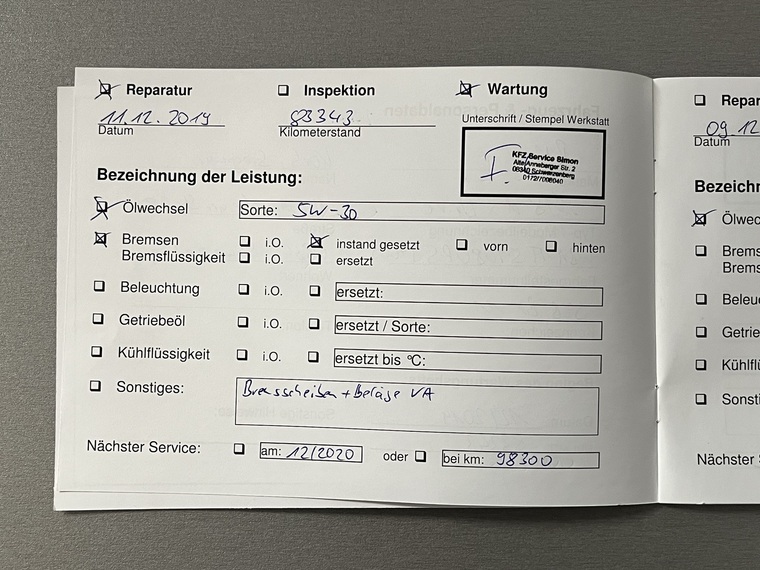 Reparatur Inspektion Wartung
11.12.2019 83343
Datum Kilometerstand Unterschrift / Stempel Werkstatt
KFZ Service Simon
Alte Annaberger Str. 2
08340 Schwarzenberg
0172/7006040
Bezeichnung der Leistung:
Ölwechsel Sorte: 5W-30
Bremsen i.O. instand gesetzt vorn hinten
Bremsflüssigkeit i.O. ersetzt
Beleuchtung i.O. ersetzt:
Getriebeöl i.O. ersetzt / Sorte:
Kühlflüssigkeit i.O. ersetzt bis °C:
Sonstiges: Bremsscheiben + Beläge VA
Nächster Service: am: 12/2020 oder bei km: 98300
Repar
09.12
Datum
Bezeichn
Ölwec
Brems
Brems
Beleu
Getrie
Kühlfl
Sonsti
Nächster